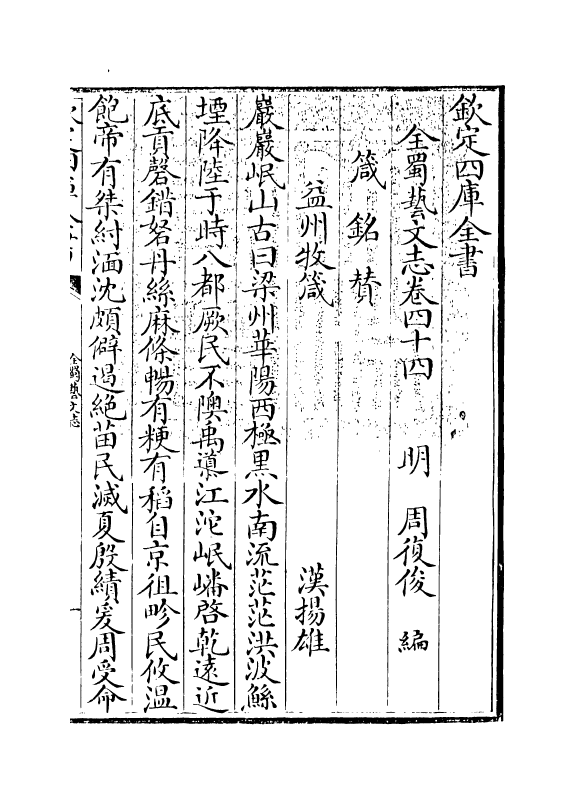 欽定四庫全書
全蜀藝文志卷四十四　明　周復俊　編
箴銘賛
益州牧箴　漢揚雄
巖巖岷山古曰梁州華陽西極黒水南流茫茫洪波鯀
堙降陸于時八都厥民不隩禹導江沱岷嶓啓乾逺近
底貢磬錯砮丹絲麻條暢有粳有稻自京徂畛民攸温
飽帝有桀紂湎沈頗僻遏絶苗民滅夏殷績爰周受命
全蜀藝文志
一